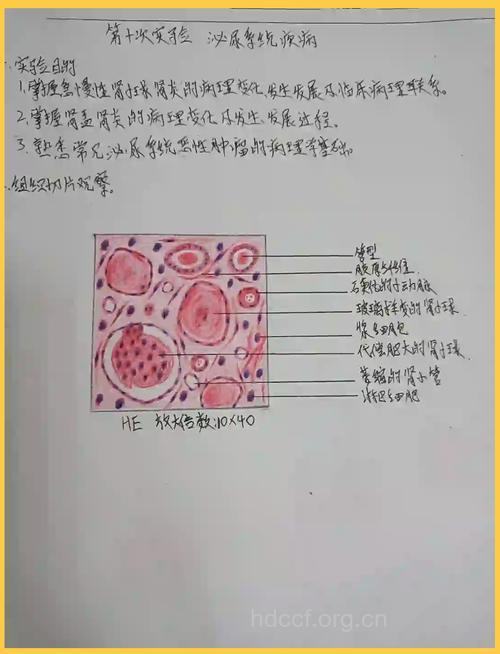 第十次实验 泌尿系统疾病
实验目的
1.掌握急慢性肾小球肾炎的病理变化、发生发展及临床病理联系。
2.掌握肾盂肾炎的病理变化及发生、发展过程。
3.熟悉常见泌尿系统恶性肿瘤的病理学基础。
组织切片观察。
管型
胶原纤维
玻变的小动脉
玻璃样变的肾小球
浆细胞
代偿肥大的肾小球
萎缩的肾小管
淋巴细胞
HE 放大倍数:10×40
hdccf.org.cn